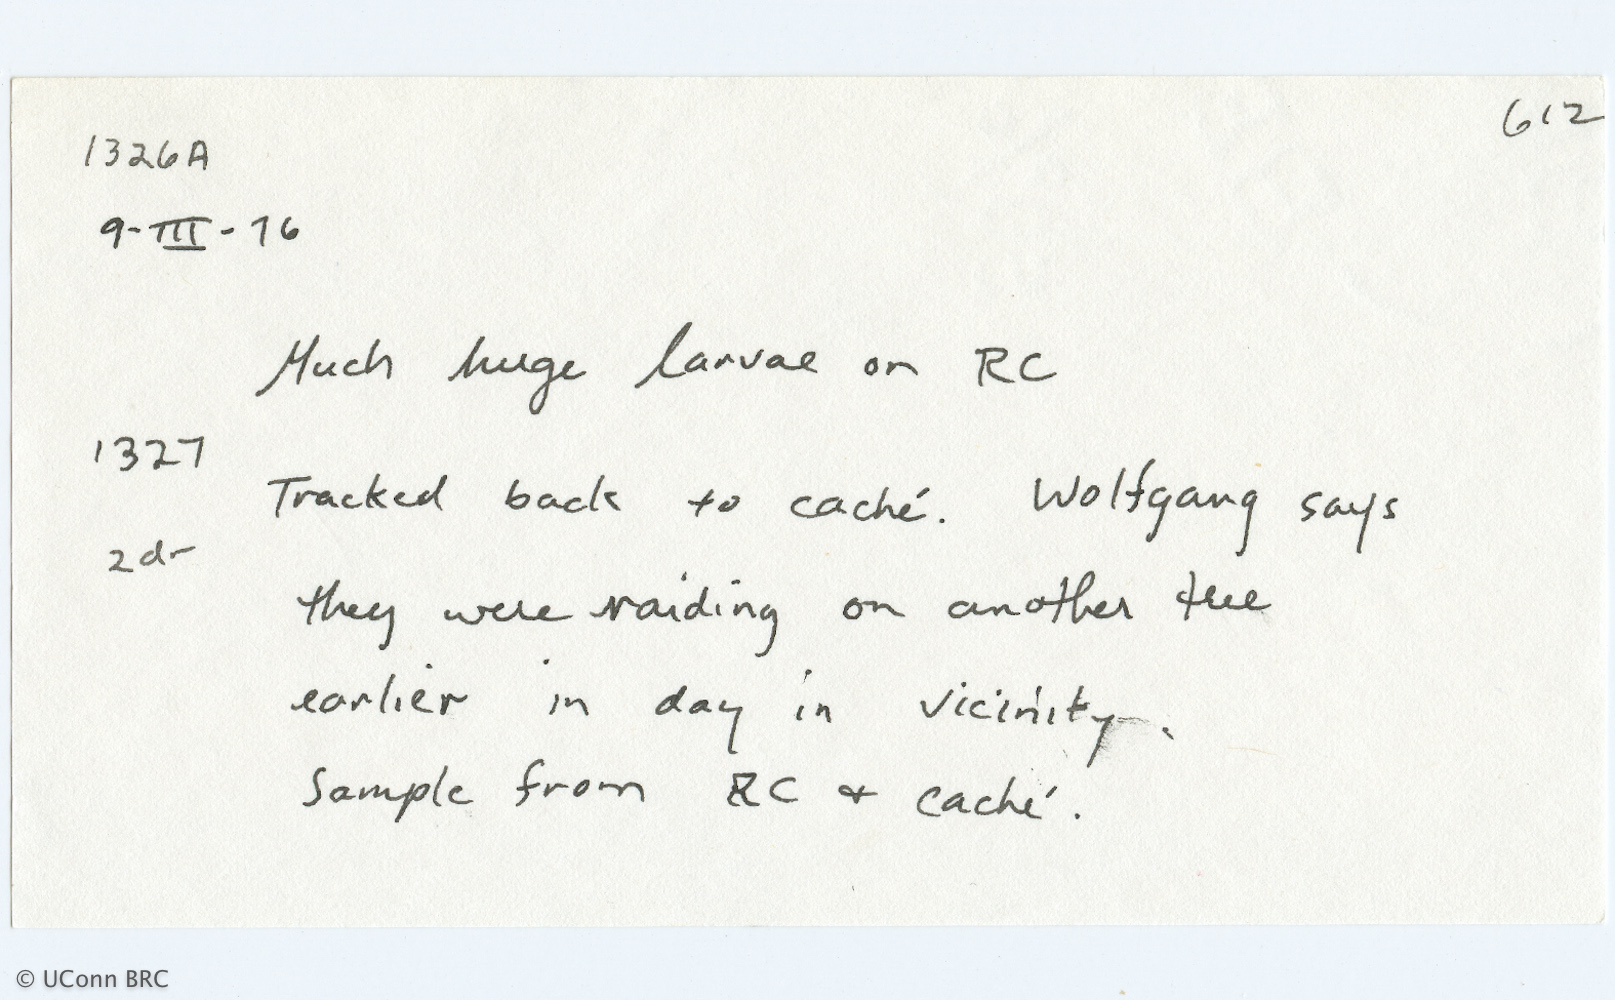 612
1326A
9-III-76
Much huge larvae on RC
1327
Tracked back to caché. Wolfgang says
2dr
they were raiding on another tree
earlier in day in vicinity.
Sample from RC & caché.
© UConn BRC